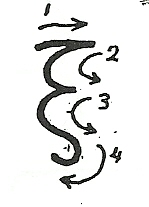 1
2
ੲ
3
4